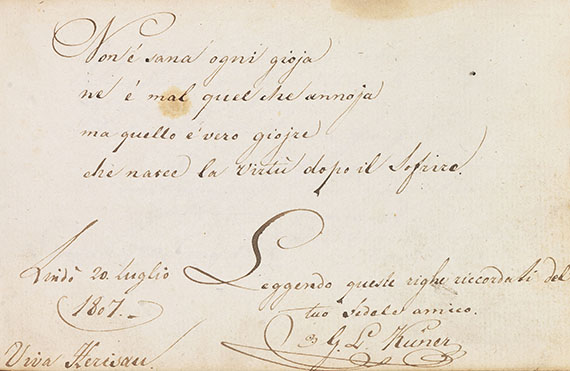 Non é sana ogni gioja
né é mal quel che annoja
ma quello é vero giojre
che nasce la Virtù dopo il Sofrire.
Lindò 20. Luglio
1807.
Leggendo queste righe riccordati del
tuo fedele amico.
G. L. Kuner
Viva Herisau.